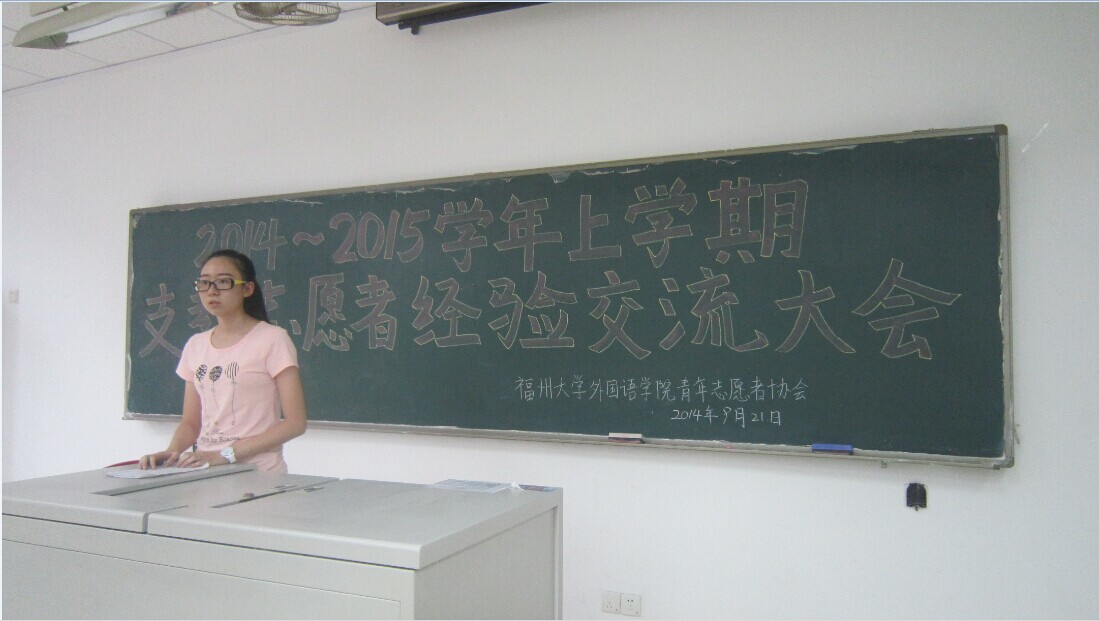 2014~2015学年上学期
支教志愿者经验交流大会
福州大学外国语学院青年志愿者协会
2014年9月21日